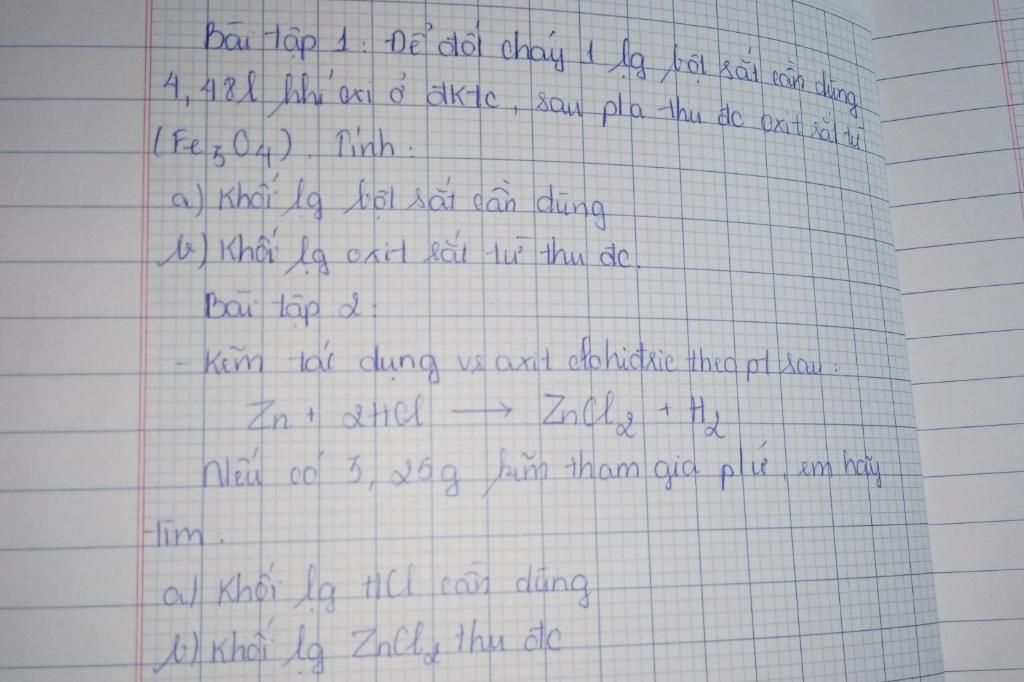 Bài tập 1. Để đốt cháy 1 lg bột sắt cần dùng
4,48l khí oxi ở đktc, sau pứa thu đc oxit sắt từ
(Fe3O4). Tính:
a) Khối lg bột sắt cần dùng
b) Khối lg oxit sắt từ thu đc.
Bài tập 2:
- Kẽm tác dụng vs axit clohiđric theo pt sau:
Zn + 2HCl → ZnCl2 + H2
Nếu có 3,25g kẽm tham gia p/ứ, em hãy
tìm.
a) Khối lg HCl cần dùng
b) Khối lg ZnCl2 thu đc